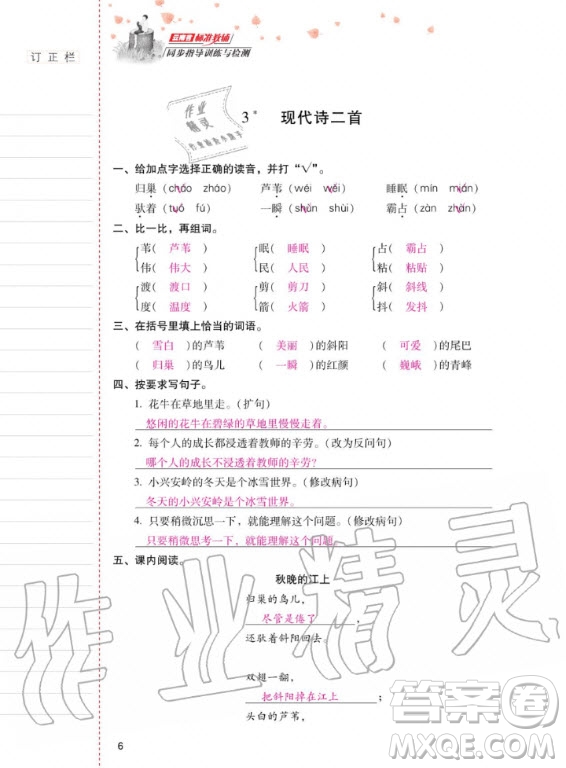 订正栏
标准教辅
同步指导训练与检测
作业
精灵
3* 现代诗二首
一、给加点字选择正确的读音,并打“√”。
归巢(cháo zháo) 芦苇(wéi wěi) 睡眠(mín mián)
驮着(tuó fú) 一瞬(shùn shùi) 霸占(zàn zhàn)
二、比一比,再组词。
苇(芦苇) 眠(睡眠) 占(霸占)
伟(伟大) 民(人民) 粘(粘贴)
渡(渡口) 剪(剪刀) 斜(斜线)
度(温度) 箭(火箭) 抖(发抖)
三、在括号里填上恰当的词语。
(雪白)的芦苇 (美丽)的斜阳 (可爱)的尾巴
(归巢)的鸟儿 (一瞬)的红颜 (巍峨)的青峰
四、按要求写句子。
1. 花牛在草地里走。(扩句)
悠闲的花牛在碧绿的草地里慢慢走着。
2. 每个人的成长都浸透着教师的辛劳。(改为反问句)
哪个人的成长不浸透着教师的辛劳?
3. 小兴安岭的冬天是个冰雪世界。(修改病句)
冬天的小兴安岭是个冰雪世界。
4. 只要稍微沉思一下,就能理解这个问题。(修改病句)
只要稍微思考一下,就能理解这个问题。
五、课内阅读。
秋晚的江上
归巢的鸟儿,
尽管是倦了,
还驮着斜阳回去。
双翅一翻,
把斜阳掉在江上;
头白的芦苇,
6
作业精灵
答案圈
MXQE.COM